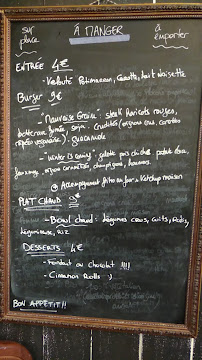 sur place
À MANGER
à emporter
ENTRÉE 4€
- Velouté Potimarron, Carotte, lait noisette
Burger 9€
- "Mauvaise Graine": steak haricots rouges,
betterave fumée, soja - Crudités (oignons crus, carottes
râpées), guacamole
- "Winter is coming": galette pois chiches, patate douce,
oignons caramélisés, champignons,
Accompagnement frites au four & Ketchup maison
PLAT CHAUD
- Bowl chaud: légumes crus, cuits, rôtis,
légumineuse, Riz
DESSERTS 4€
- Fondant au chocolat !!!!
- Cinnamon Rolls :)
BON APPÉTIT!!